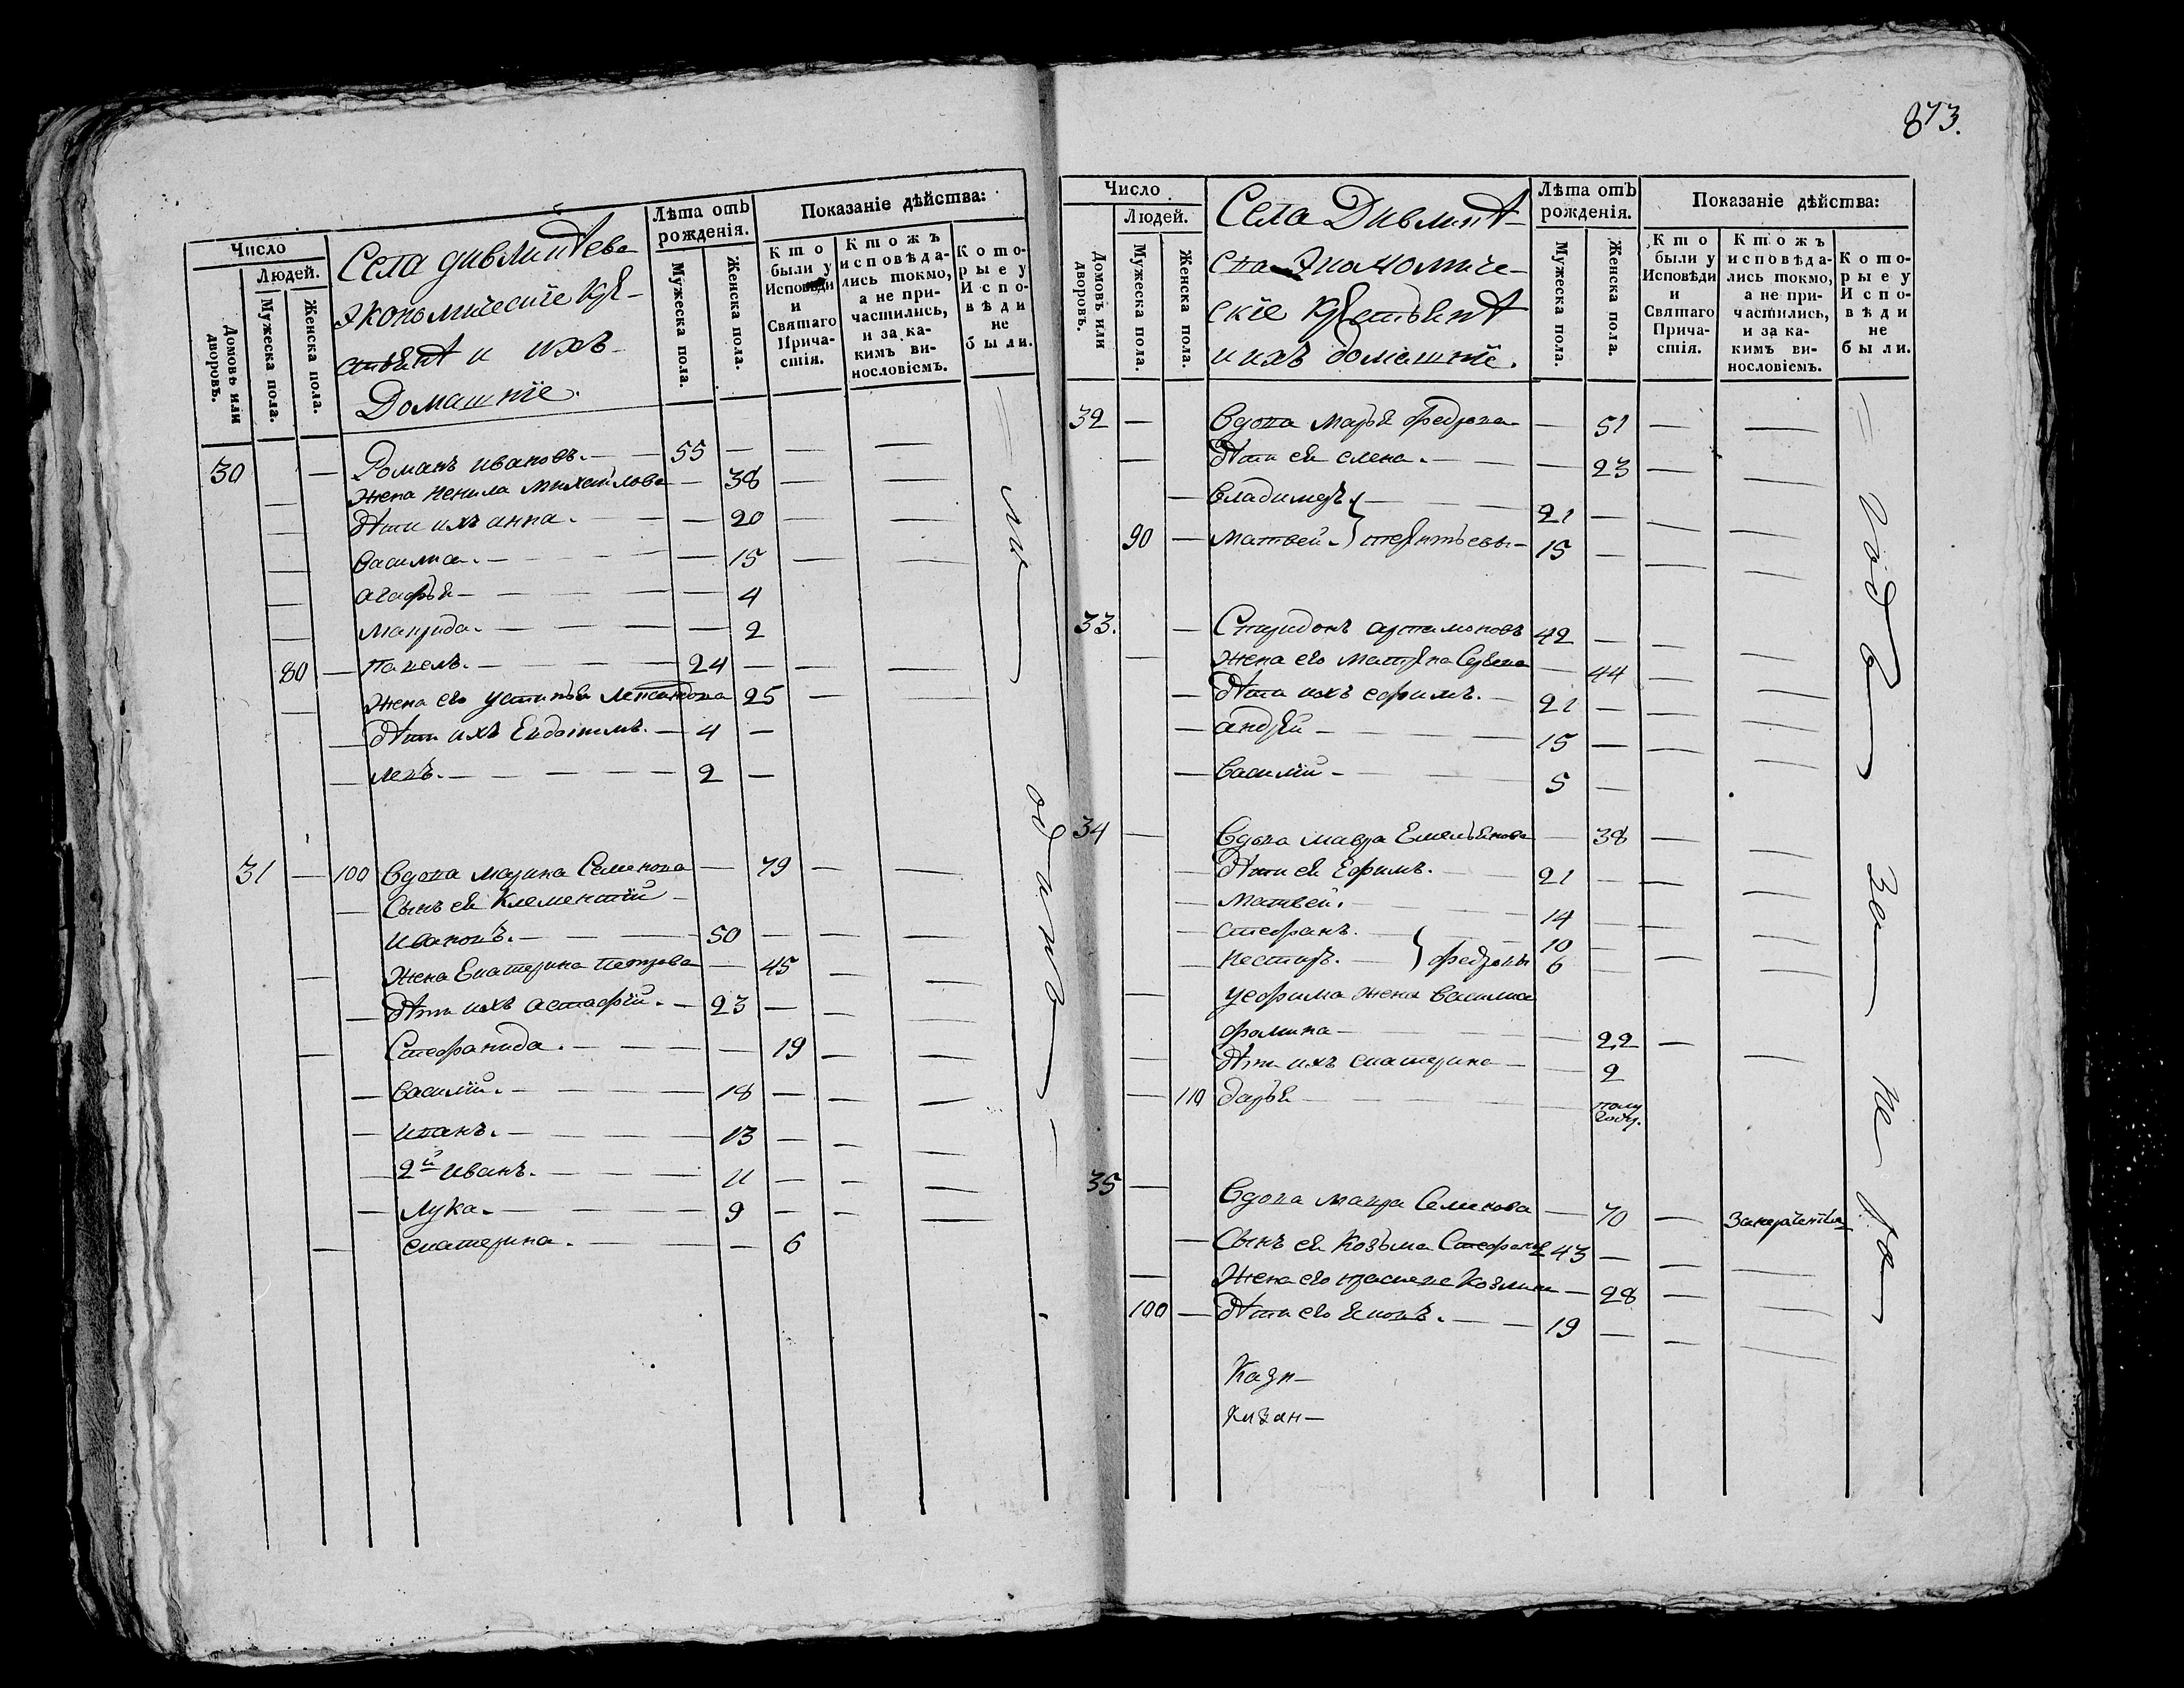 Число
Людей.
Домовъ или дворовъ.
Мужеска пола.
Женска пола.
Села дивлитѣева
экономическіе кре-
стьянѣ и ихъ
Домашніе.
Лѣта отъ рожденія.
Мужеска пола.
Женска пола.
Показаніе дѣйства:
Кто были у Исповѣди и Святаго Прича-стія.
Ктожъ исповѣда-лись токмо, а не при-частились, и за ка-кимъ ви-нословіемъ.
Кото-рые у Испо-вѣди не были.
30 — Романъ ивановъ. — 55 —
— Жена ненила михайлова — 38
— дѣти ихъ анна. — 20
— василиса. — 15
— агафья — 4
— макрида. — 2
80 — павелъ. — 24 —
— жена его устинья — 25
— дѣти ихъ Евдокимъ. — 4 —
— левъ. — 2 —
31 — 100 вдова марина Семенова — 79
— сынъ ея Клементій —
ивановъ. — 50 —
— жена Екатерина петрова — 45
— дѣти ихъ астафій. — 23 —
— Стефанида. — 19
— василій. — 18 —
— иванъ. — 13 —
— 2й иванъ. — 11 —
— лука. — 9 —
— екатерина. — 6
873.
Число
Людей.
Домовъ или дворовъ.
Мужеска пола.
Женска пола.
Села Дивлитѣ-
ва экономиче-
скіе крестьянѣ
и ихъ домашніе.
Лѣта отъ рожденія.
Мужеска пола.
Женска пола.
Показаніе дѣйства:
Кто были у Исповѣди и Святаго Прича-стія.
Ктожъ исповѣда-лись токмо, а не при-частились, и за ка-кимъ ви-нословіемъ.
Кото-рые у Испо-вѣди не были.
32 — вдова марья федрова — 51
— дѣти ея елена. — 23
— владимеръ — 21 —
90 — матвей. } терентьевы — 15 —
33. — Спиридонъ артамоновъ 42 —
— жена его матрена — 44
— дѣти ихъ ефимъ. — 21 —
— андрей — 15 —
— василій — 5 —
34 — вдова мавра Емельянова — 38
— дѣти ея Ефимъ. — 21 —
— матвей. — 14 —
— стефанъ. — 10 —
— нестеръ. — } федровы 6 —
— у ефима жена василиса
фомина — 22
— дѣти ихъ екатерина — 2
— 110 дарья — полу году.
35 — вдова мавра Семенова — 70
— сынъ ея Козьма Стефановъ 43 —
— жена его Козмина — 28
100 — дѣти его яковъ. — 19 —